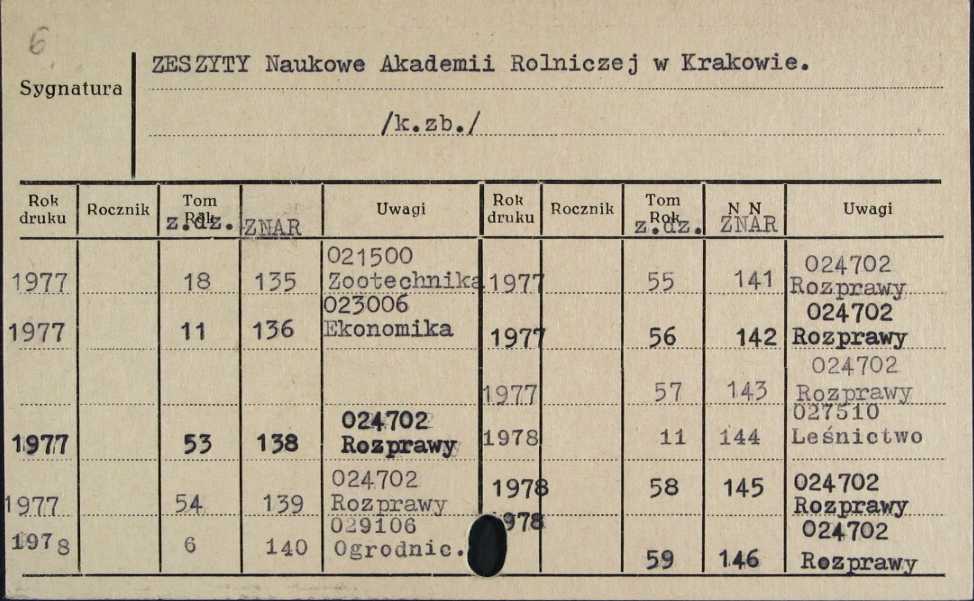 6
Sygnatura
ZESZYTY Naukowe Akademii Rolniczej w Krakowie.
/k.zb./
Rok druku Rocznik Tom Rok z.dz. ZNAR Uwagi
1977 18 135 021500 Zootechnika
1977 11 136 023006 Ekonomika
1977 53 138 024702 Rozprawy
1977 54 139 024702 Rozprawy
1978 6 140 029106 Ogrodnic.
Rok druku Rocznik Tom Rok z.dz. N N ZNAR Uwagi
1977 55 141 024702 Rozprawy
1977 56 142 024702 Rozprawy
1977 57 143 024702 Rozprawy
1978 11 144 027510 Leśnictwo
1978 58 145 024702 Rozprawy
1978 59 146 024702 Rozprawy